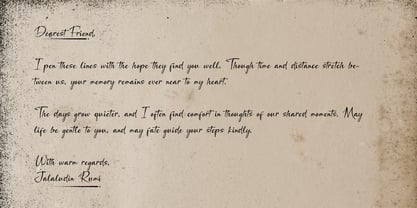 Dearest Friend,
I pen these lines with the hope they find you well. Though time and distance stretch be-
tween us, your memory remains ever near to my heart.
The days grow quieter, and I often find comfort in thoughts of our shared moments. May
life be gentle to you, and may fate guide your steps kindly.
With warm regards,
Jalaludin Rumi